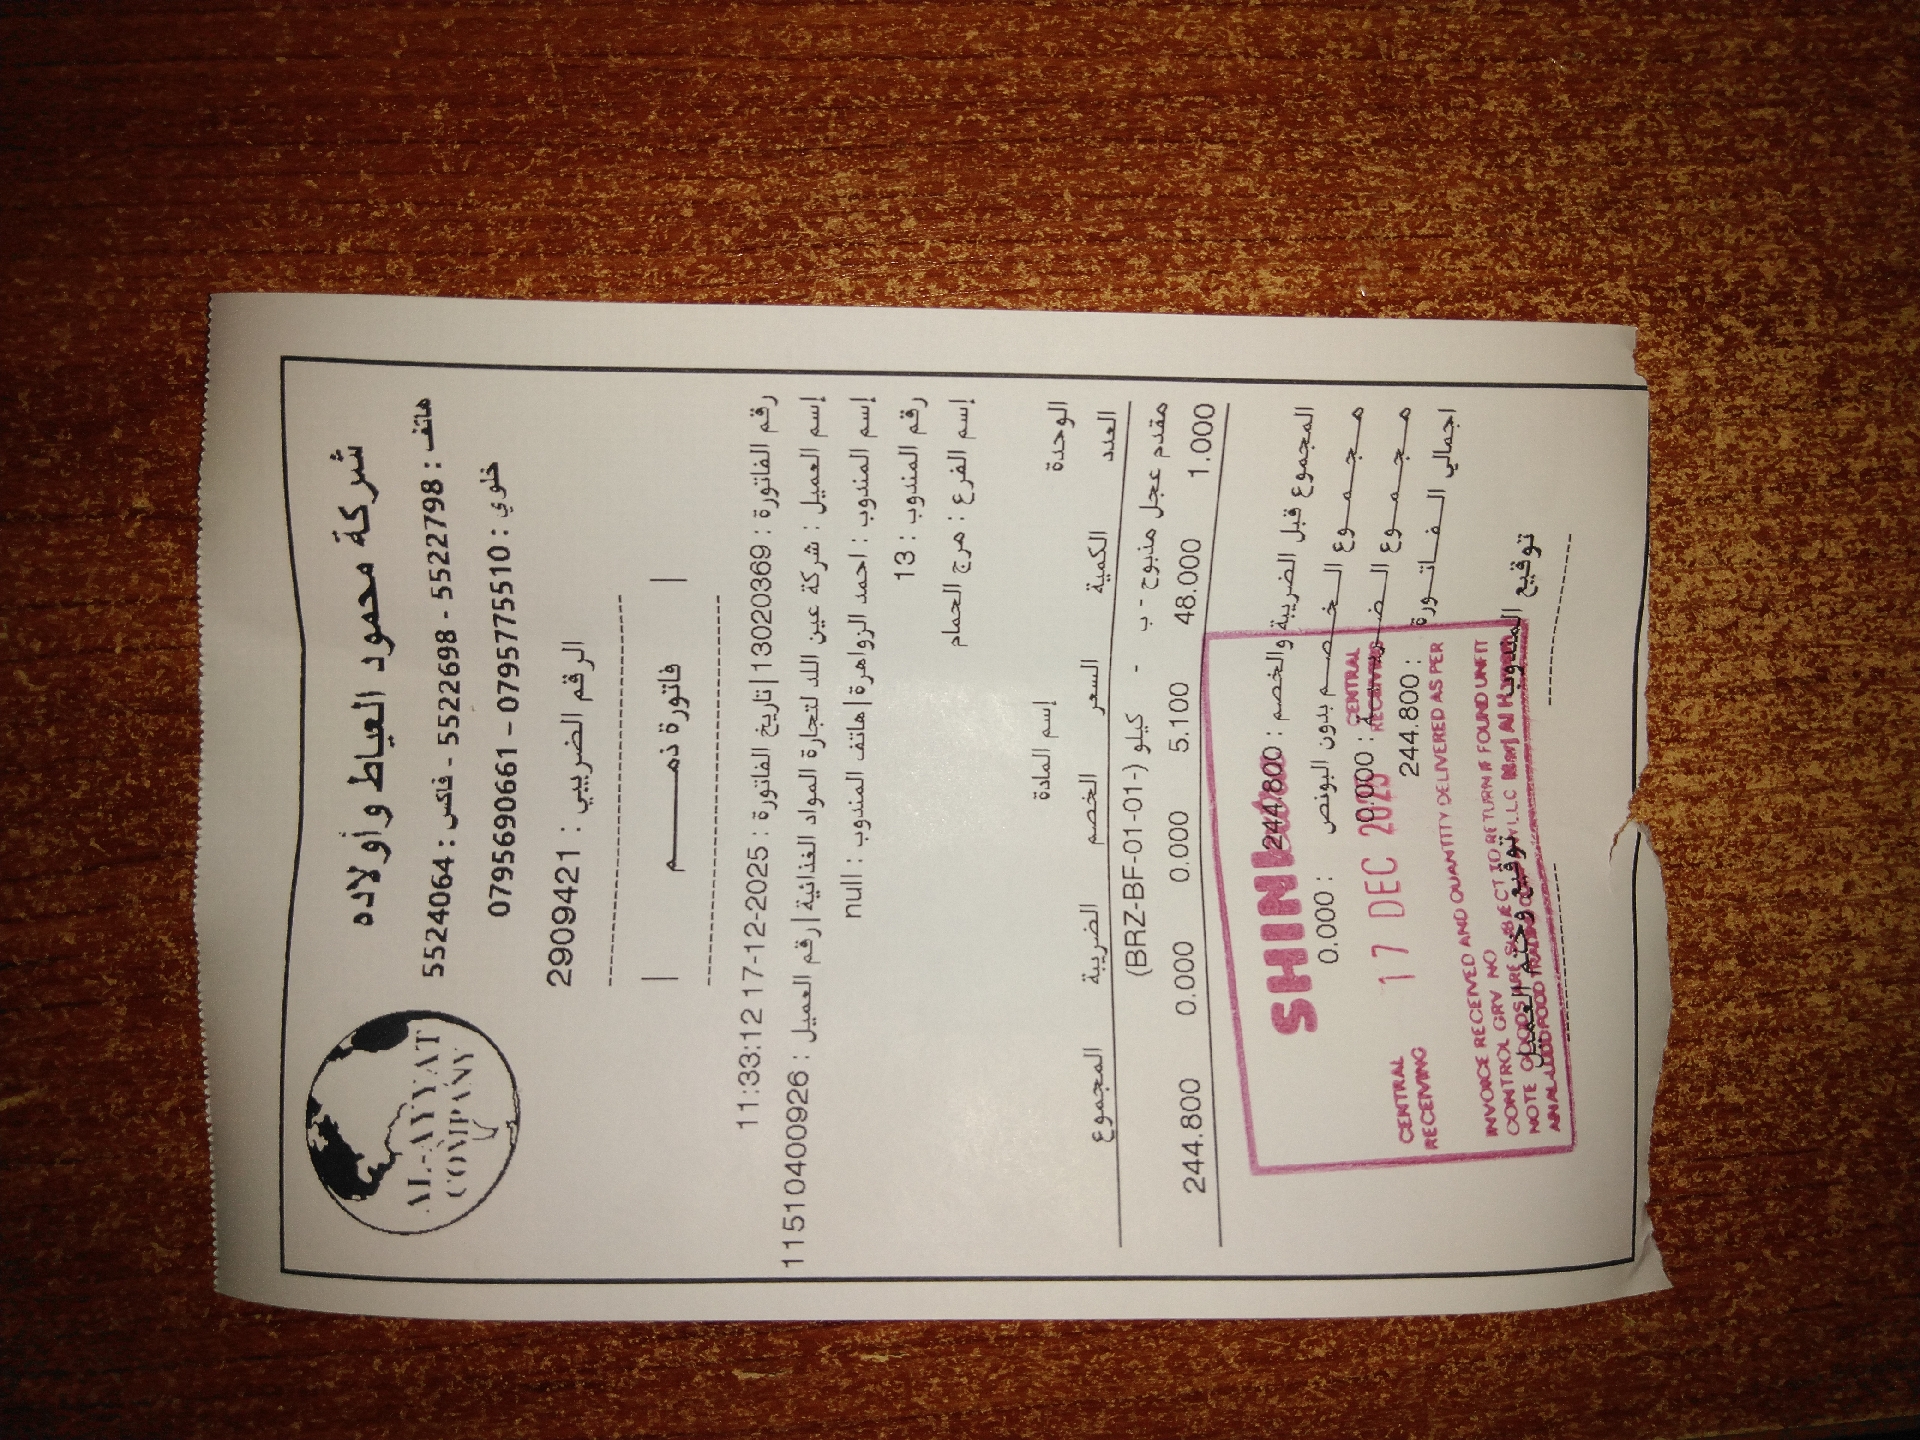 شركة محمود العياط وأولاده
AL-AYYAT
COMPANY
هاتف : 5522798 - 5522698 - فاكس : 5524064
خلوي : 0795775510 - 0795690661
الرقم الضريبي : 2909421
فاتورة ذمــــم
رقم الفاتورة : 13020369 | تاريخ الفاتورة : 2025-12-17 11:33:12
إسم العميل : شركة عين اللد لتجارة المواد الغذائية | رقم العميل : 11510400926
إسم المندوب : احمد الزواهرة | هاتف المندوب : null
رقم المندوب : 13
إسم الفرع : مرج الحمام
الوحدة إسم المادة
العدد الكمية السعر الخصم الضريبة المجموع
مقدم عجل مذبوح - ب - كيلو (-BRZ-BF-01-01)
1.000 48.000 5.100 0.000 0.000 244.800
المجموع قبل الضريبة والخصم : 244.800
مجموع الخصم بدون البونص : 0.000
مجموع : 0.000
اجمالي الفاتورة : 244.800
توقيع المندوب
توقيع وختم العميل
SHINI
CENTRAL
RECEIVING
17 DEC 2025
CENTRAL
RECEIVING
INVOICE RECEIVED AND QUANTITY DELIVERED AS PER
CONTROL GRV NO
NOTE GOODS ARE SUBJECT TO RETURN IF FOUND UNFIT